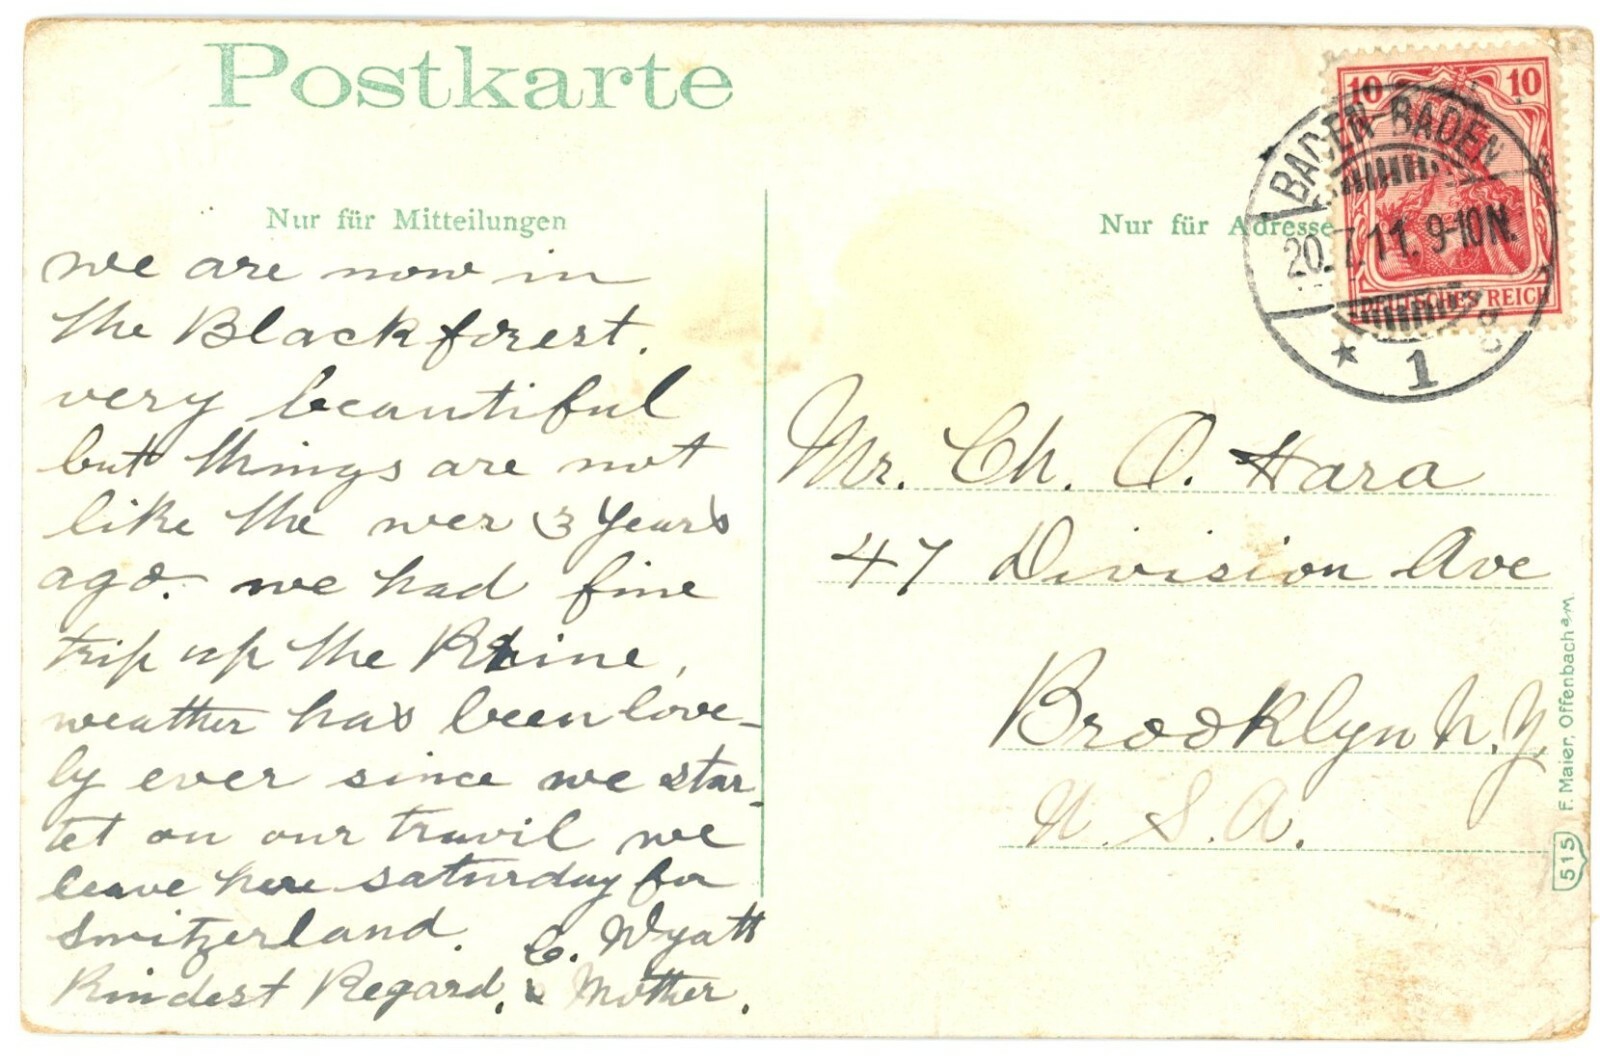 Postkarte
Nur für Mitteilungen
we are now in
the Blackforest.
very beautiful
but things are not
like the wer 3 years
ago. we had fine
trip up the Rhine,
weather has been love-
ly ever since we star-
tet on our travil we
leave here saturday for
Switzerland.
C. Wyatt
Kindest Regard. & Mother.
Nur für Adresse
10 10
DEUTSCHES REICH
BADEN-BADEN
20.7.11. 9-10N.
* 1
Mr. Ch. O. Hara
47 Division Ave
Brooklyn N.Y.
U.S.A.
F. Maier, Offenbach a/M.
515